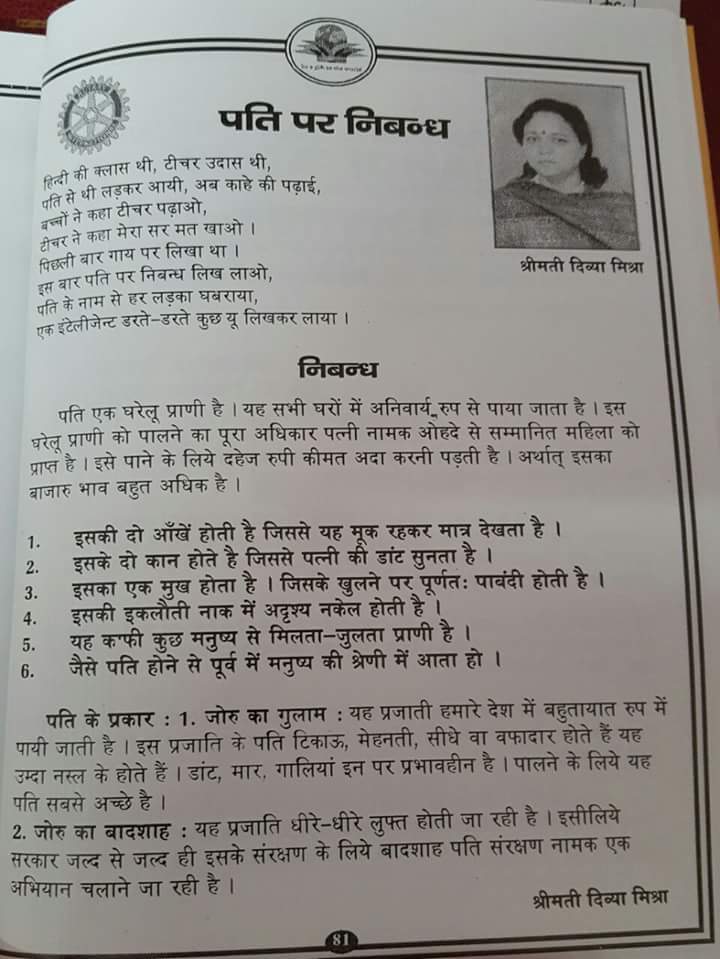 be a gift to the world
ROTARY
INTERNATIONAL
पति पर निबन्ध
हिन्दी की क्लास थी, टीचर उदास थी,
पति से थी लड़कर आयी, अब काहे की पढ़ाई,
बच्चों ने कहा टीचर पढ़ाओ,
टीचर ने कहा मेरा सर मत खाओ ।
पिछली बार गाय पर लिखा था ।
इस बार पति पर निबन्ध लिख लाओ,
पति के नाम से हर लड़का घबराया,
एक इंटेलीजेन्ट डरते-डरते कुछ यू लिखकर लाया ।
श्रीमती दिव्या मिश्रा
निबन्ध
पति एक घरेलू प्राणी है । यह सभी घरों में अनिवार्य रुप से पाया जाता है । इस
घरेलू प्राणी को पालने का पूरा अधिकार पत्नी नामक ओहदे से सम्मानित महिला को
प्राप्त है । इसे पाने के लिये दहेज रुपी कीमत अदा करनी पड़ती है । अर्थात् इसका
बाजारु भाव बहुत अधिक है ।
1. इसकी दो आँखें होती है जिससे यह मूक रहकर मात्र देखता है ।
2. इसके दो कान होते है जिससे पत्नी की डांट सुनता है ।
3. इसका एक मुख होता है । जिसके खुलने पर पूर्णतः पाबंदी होती है ।
4. इसकी इकलौती नाक में अदृश्य नकेल होती है ।
5. यह काफी कुछ मनुष्य से मिलता-जुलता प्राणी है ।
6. जैसे पति होने से पूर्व में मनुष्य की श्रेणी में आता हो ।
पति के प्रकार : 1. जोरु का गुलाम : यह प्रजाती हमारे देश में बहुतायात रुप में
पायी जाती है । इस प्रजाति के पति टिकाऊ, मेहनती, सीधे वा वफादार होते हैं यह
उम्दा नस्ल के होते हैं । डांट, मार, गालियां इन पर प्रभावहीन है । पालने के लिये यह
पति सबसे अच्छे है ।
2. जोरु का बादशाह : यह प्रजाति धीरे-धीरे लुफ्त होती जा रही है । इसीलिये
सरकार जल्द से जल्द ही इसके संरक्षण के लिये बादशाह पति संरक्षण नामक एक
अभियान चलाने जा रही है ।
श्रीमती दिव्या मिश्रा
81